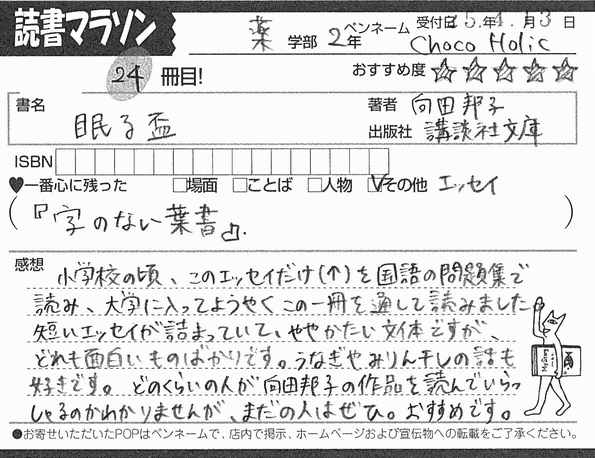 読書マラソン
薬 学部 2年 ペンネーム Choco Holic 受付日 15.年4.月13日
24 冊目! おすすめ度 ☆☆☆☆☆
書名 眠る盃
著者 向田邦子
出版社 講談社文庫
ISBN
♥一番心に残った □場面 □ことば □人物 ☑その他 エッセイ
(『字のない葉書』.)
感想
小学校の頃、このエッセイだけ(↑)を国語の問題集で
読み、大学に入ってようやくこの一冊を通して読みました。
短いエッセイが詰まっていて、ややかたい文体ですが、
どれも面白いものばかりです。うなぎやみりん干しの話も
好きです。どのくらいの人が向田邦子の作品を読んでいらっ
しゃるのかわかりませんが、まだの人はぜひ。おすすめです。
●お寄せいただいたPOPはペンネームで、店内で掲示、ホームページおよび宣伝物への転載をご了承ください。